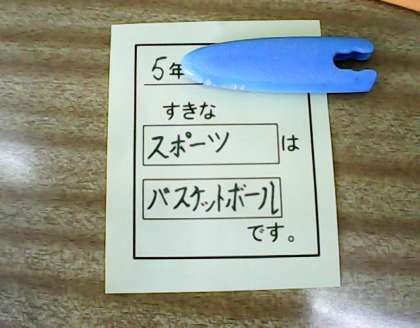 5年
すきな
スポーツは
バスケットボール
です。